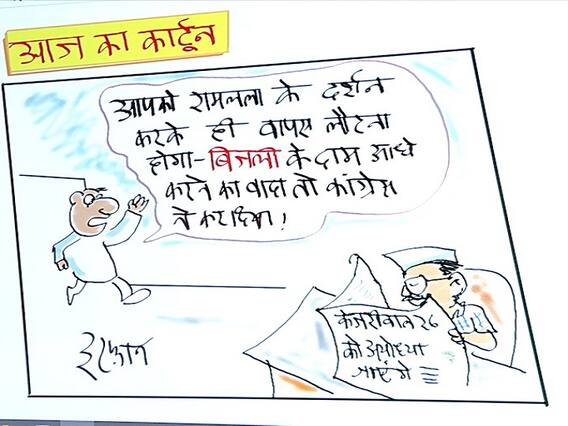 आज का कार्टून
आपको रामलला के दर्शन
करके ही वापस लौटना
होगा- बिजली के दाम आधे
करने का वादा तो कांग्रेस
ने कर दिया!
केजरीवाल 26
को अयोध्या
जाएंगे
इरफ़ान